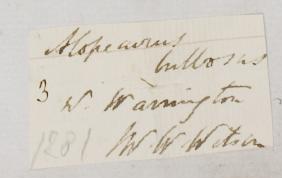 Alopecurus
bulbosus
3
W. Warrington
1281
W. W. Watson